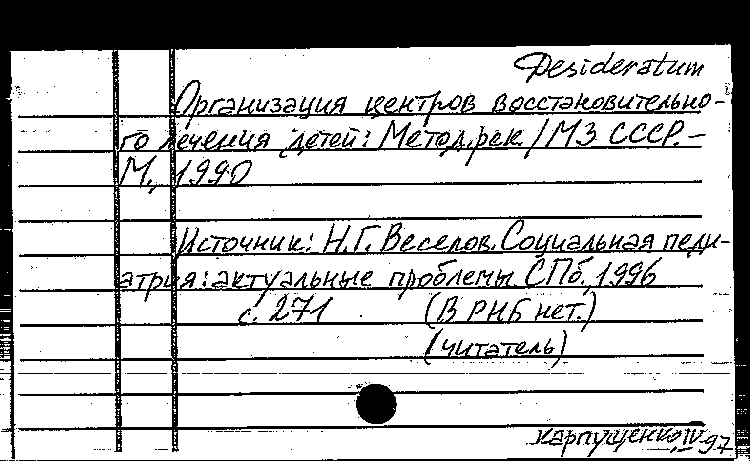 Desideratum
Организация центров восстановительно-
го лечения детей: Метод.рек./МЗ СССР.-
М., 1990
Источник: Н.Г. Веселов. Социальная педи-
атрия: актуальные проблемы. СПб., 1996
с. 271 (В РНБ нет.)
(читатель)
Карпущенко, IV 97